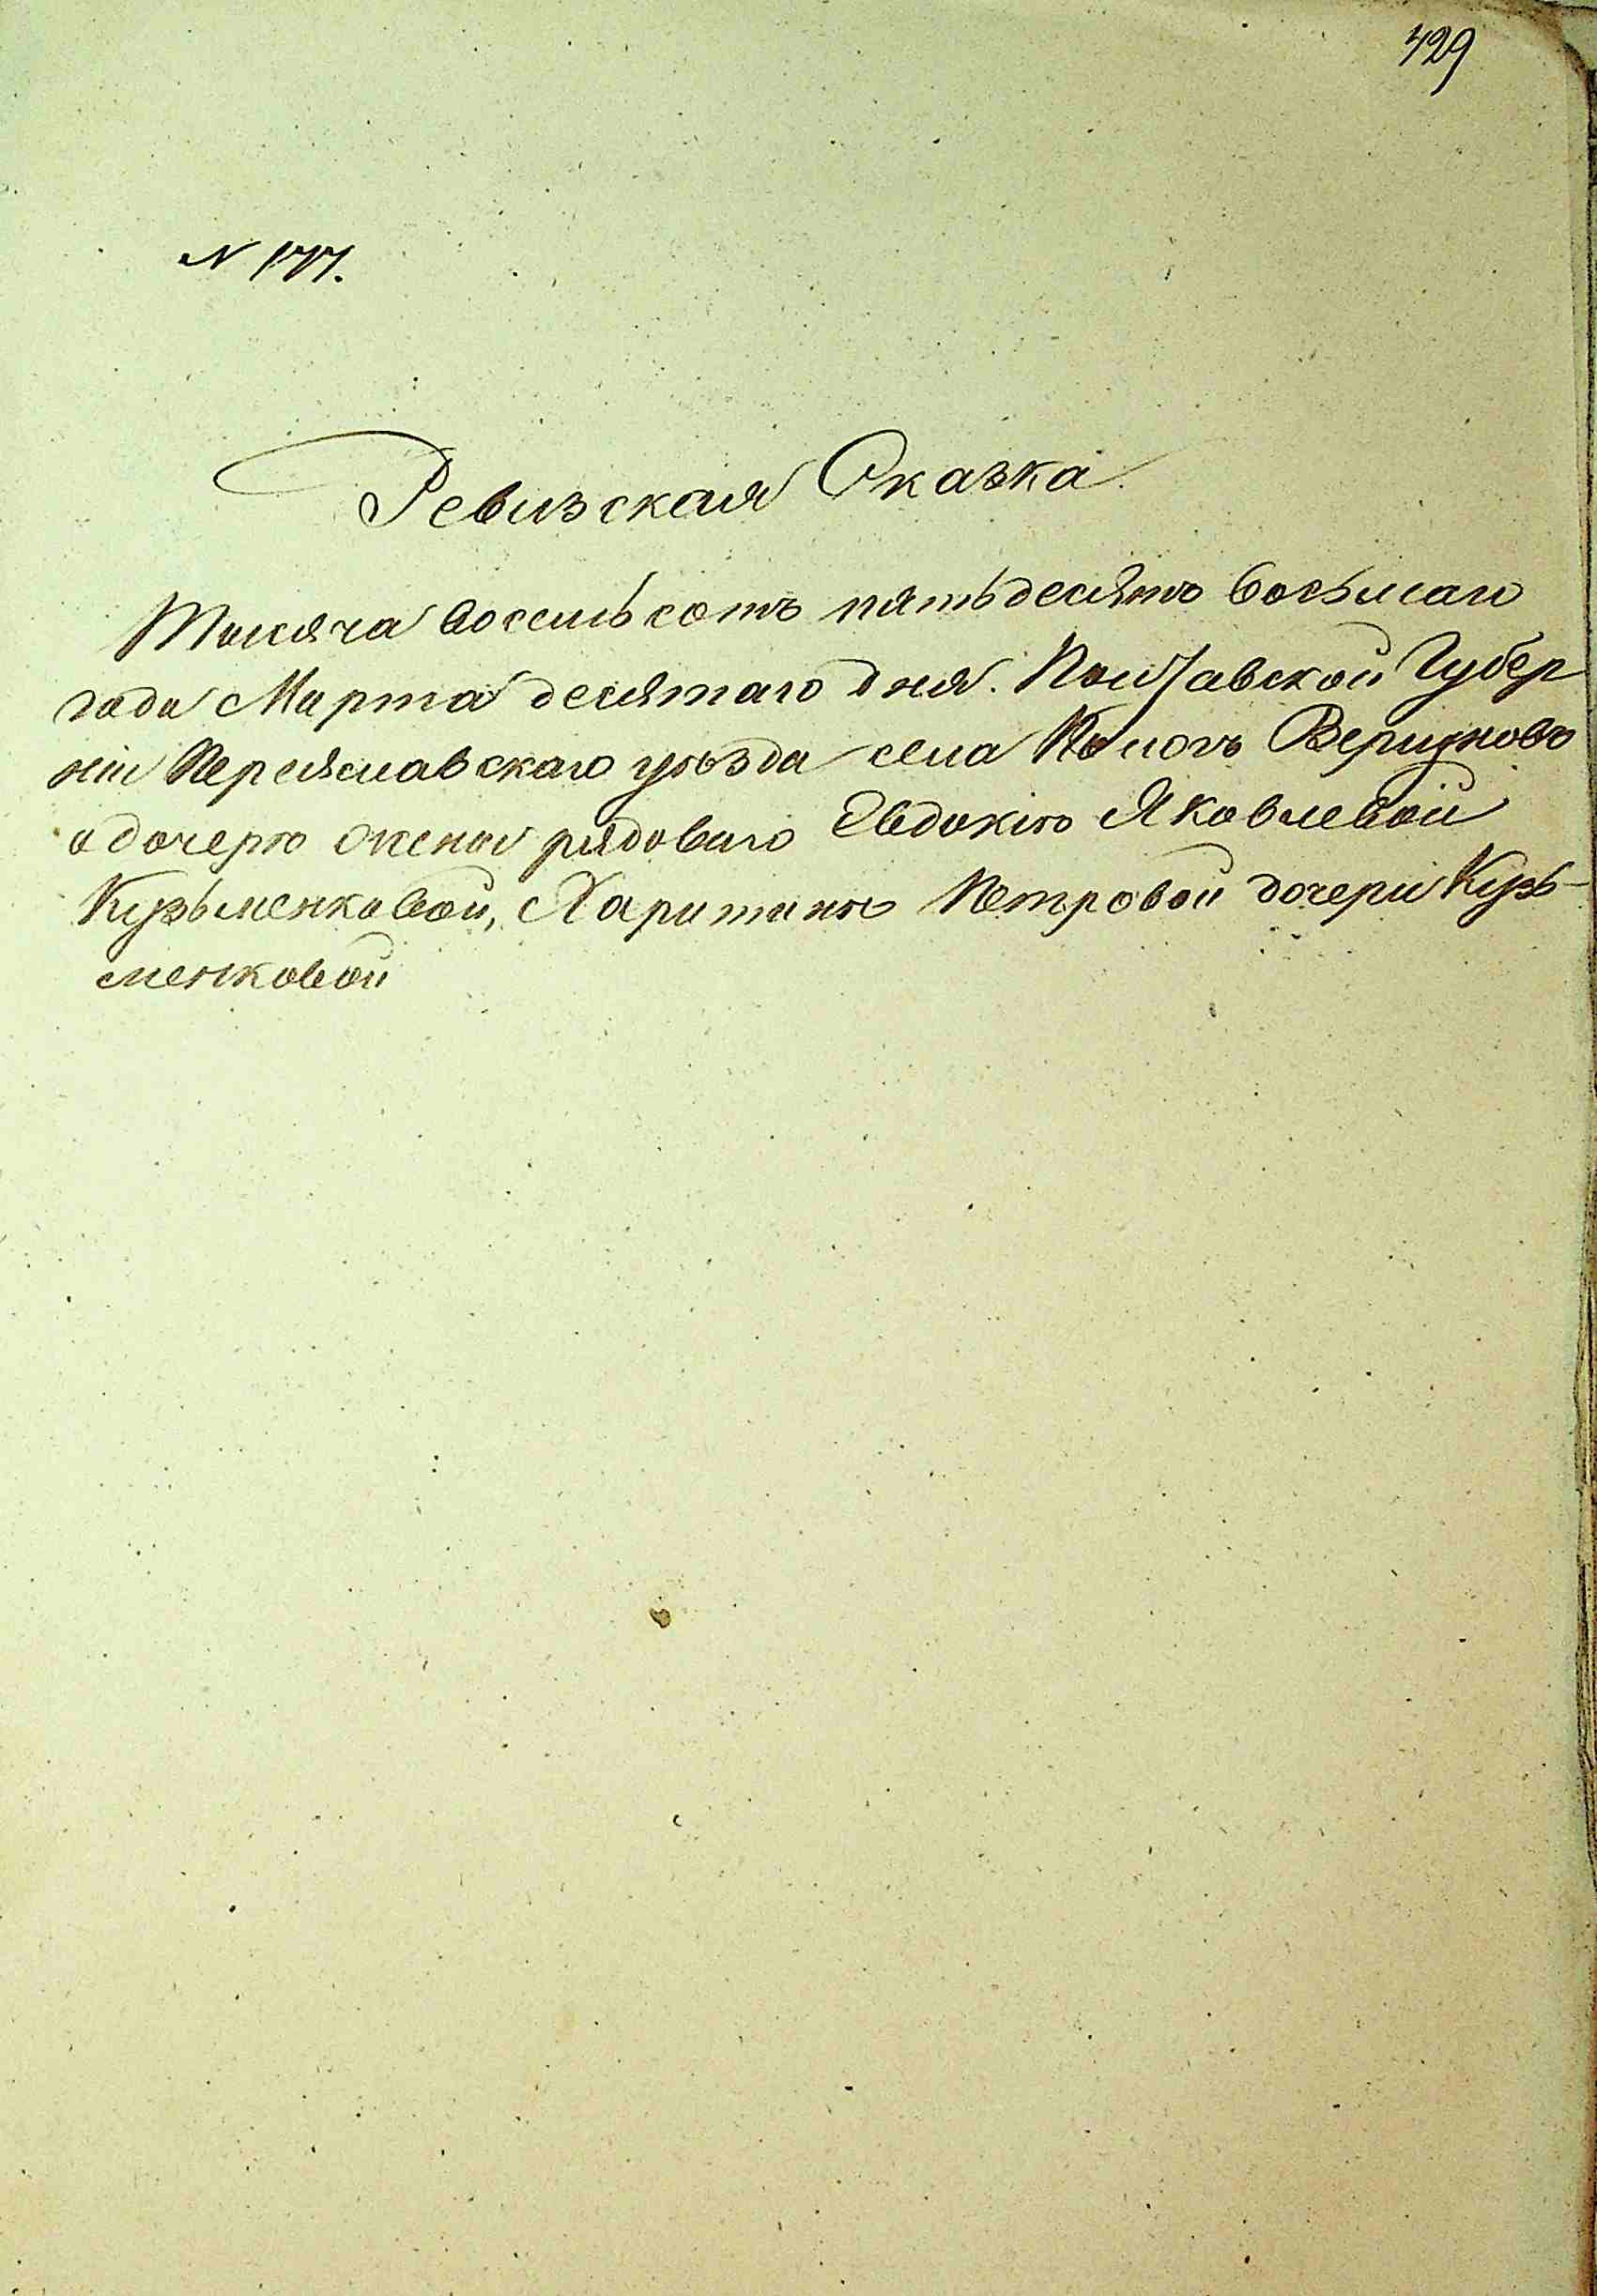 429
N 177.
Ревизская Сказка
Тысяча восемьсотъ пятьдесятъ восьмаго
года Марта десятаго дня. Полтавской Губер
ніи Переяславскаго уѣзда села
о дочерѣ жены рядоваго Евдокіи Яковлевой
Кузьменковой, Харитинѣ Петровой дочери Кузь-
менковой